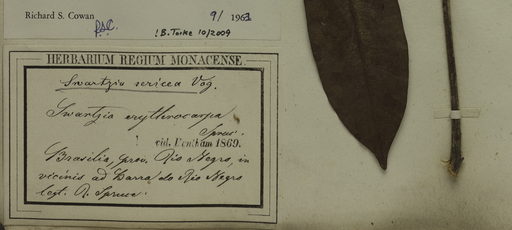 Richard S. Cowan 9/ 1961
RSC.
!B. Torke 10/2009
HERBARIUM REGIUM MONACENSE.
Swartzia sericea Vog.
Swartzia erythrocarpa
Spruc.
vid. Bentham 1869.
Brasilia, prov. Rio Negro, in
vicinis ad Barra do Rio Negro
legt. R. Spruce.